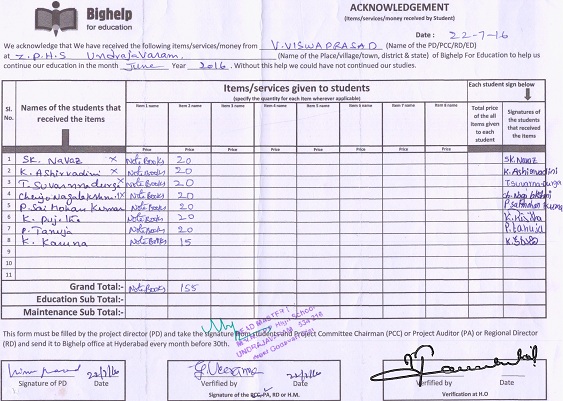 Bighelp
for education
ACKNOWLEDGEMENT
(Items/services/money received by Student)
Date : 22-7-16
We acknowledge that We have received the following items/services/money from V.VISWAPRASAD (Name of the PD/PCC/RD/ED)
at Z.P.H.S Undrajavaram, (Name of the Place/village/town, district & state) of Bighelp For Education to help us
continue our education in the month June Year 2016. Without this help we could have not continued our studies.
Sl. No. Names of the students that received the items
Items/services given to students
(specify the quantity for each item wherever applicable)
Each student sign below
Item 1 name Item 2 name Item 3 name Item 4 name Item 5 name Item 6 name Item 7 name Item 8 name
Total price of the all items given to each student
Signatures of the students that received the items
Price Price Price Price Price Price Price Price
1 SK. Navaz x Note Books 20
2 K. Ashirvadini x Note Books 20 K. Ashirvadini
3 T. Suvarnadurga x Note Books 20
4 Note Books 20
5 P. Sai Mohan Kumar Note Books 20
6 K. Note Books 20
7 P. Tanuja Note Books 20 P. Tanuja
8 K. Karuna Note Books 15
9
10
11
Grand Total:- Note Books 155
Education Sub Total:-
Maintenance Sub Total:-
HEAD MASTER
High School
UNDRAJAVARAM
West Godavari
This form must be filled by the project director (PD) and take the signature from students and Project Committee Chairman (PCC) or Project Auditor (PA) or Regional Director
(RD) and send it to Bighelp office at Hyderabad every month before 30th.
Signature of PD Date
Verified by Date
Signature of the PCC, PA, RD or H.M.
Verified by Date
Verification at H.O